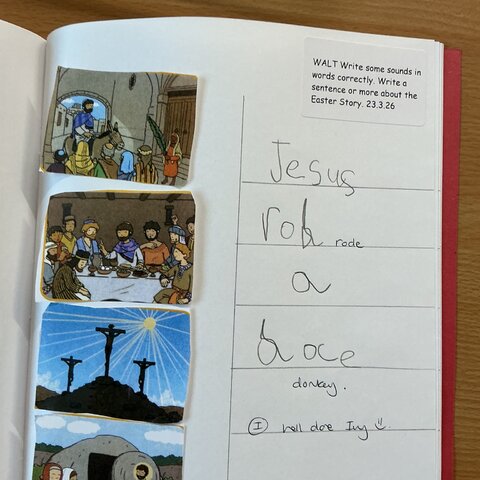 WALT Write some sounds in
words correctly. Write a
sentence or more about the
Easter Story. 23.3.26
Jesus
roh rode
a
doce
donkey.
I well done Ivy